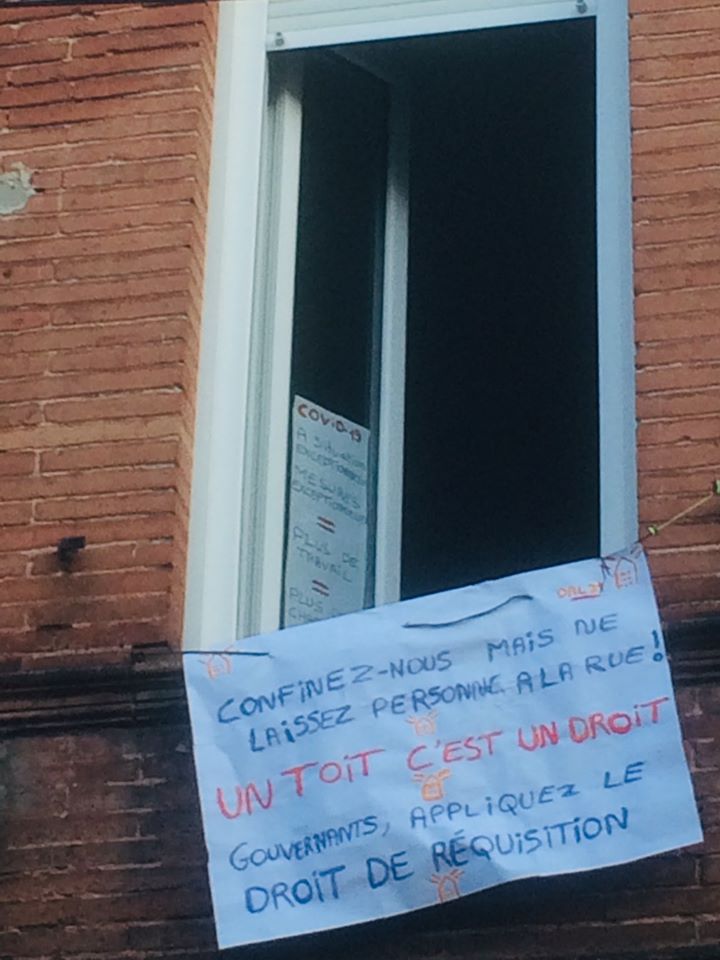 COVID-19
A situation
exceptionnelle
MESURES
EXCEPTIONNELLES
=
PLUS DE
TRAVAIL
=
PLUS
DAL31
CONFINEZ-NOUS MAIS NE
LAISSEZ PERSONNE A LA RUE!
UN TOIT C'EST UN DROIT
GOUVERNANTS, APPLIQUEZ LE
DROIT DE RÉQUISITION